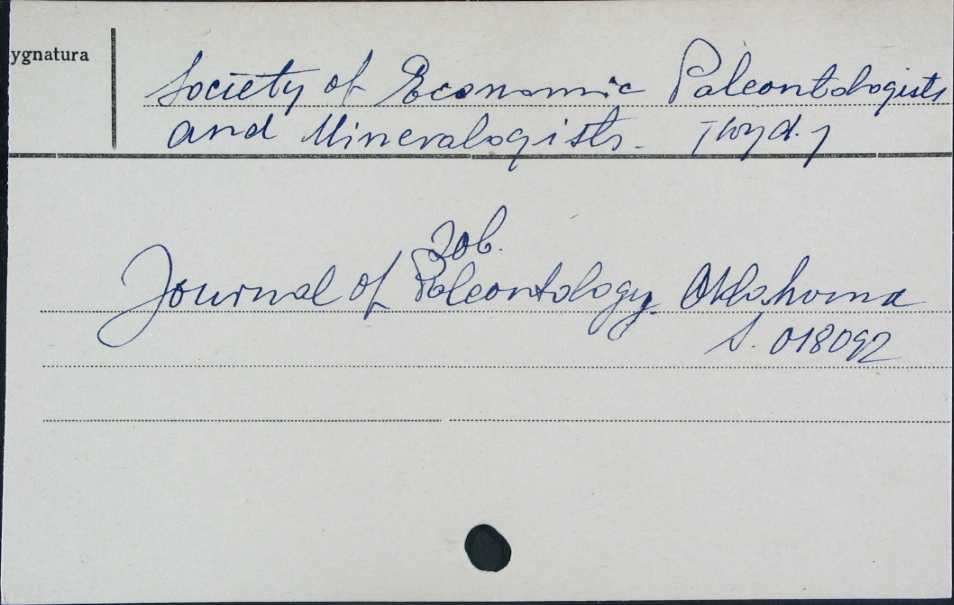 ygnatura
Society of Economic Paleontologists
and Mineralogists. [wyd.]
zob.
Journal of Paleontology. Oklahoma
S. 018092